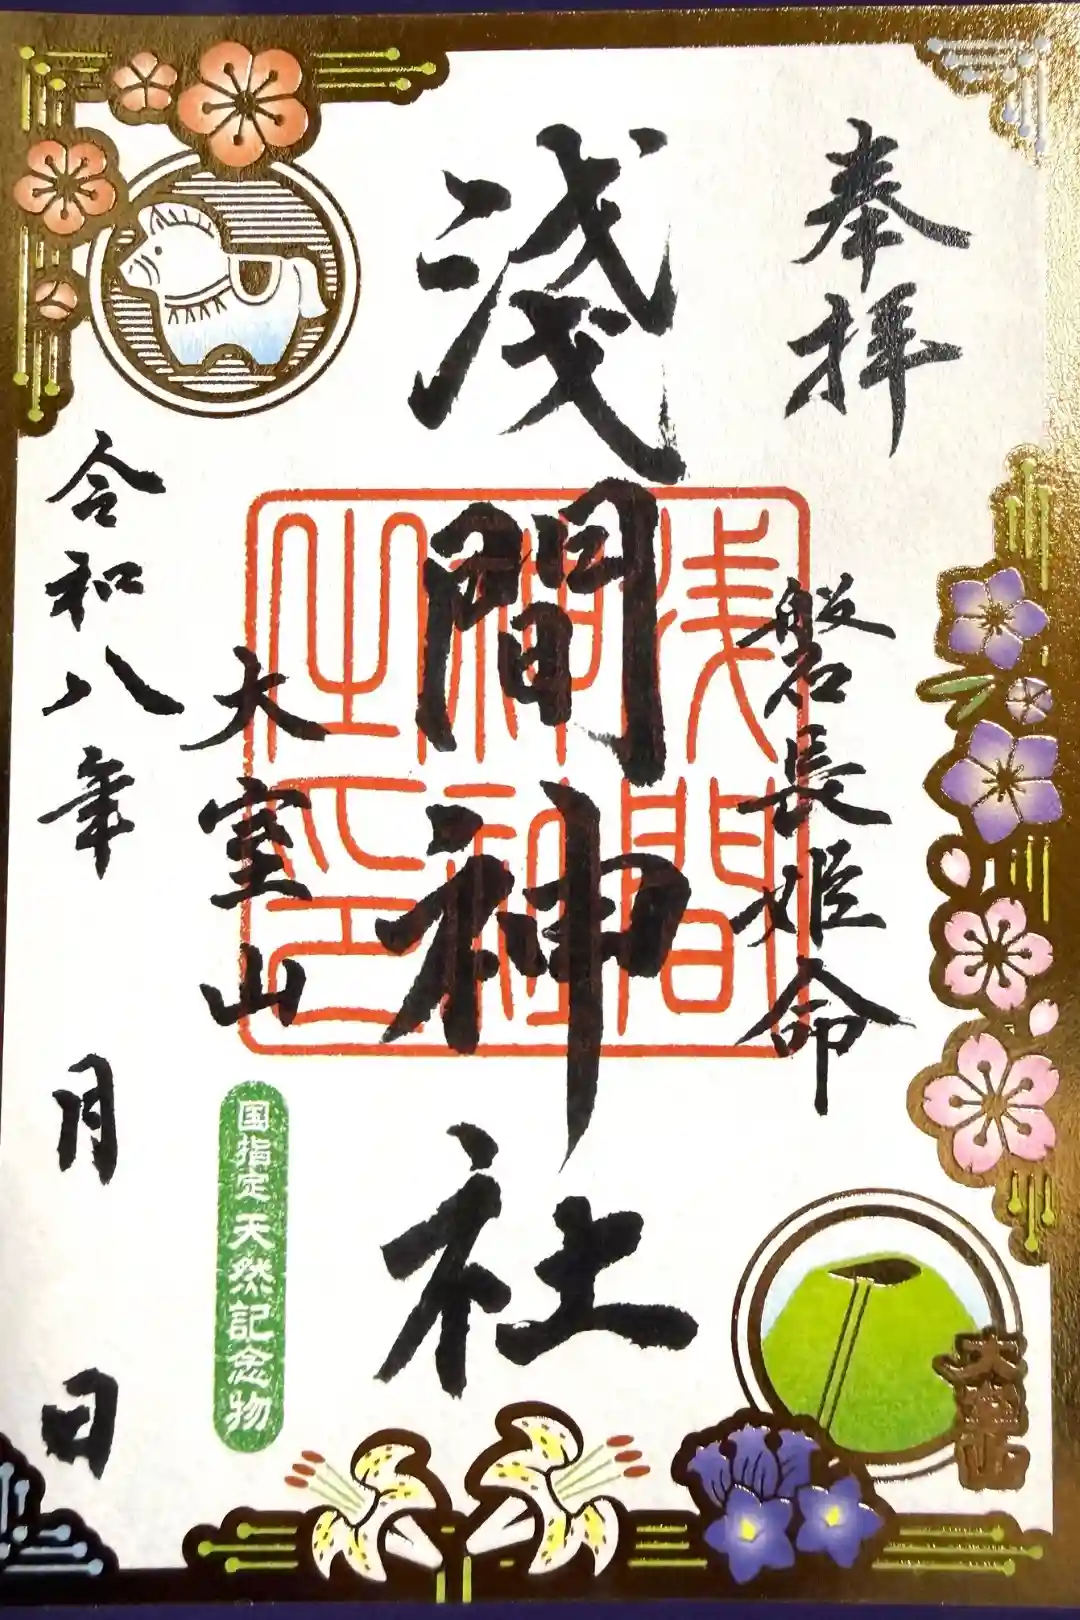 奉拝
磐長姫命
淺間神社
浅間神社之印
大室山
国指定天然記念物
令和八年 月 日
大室山